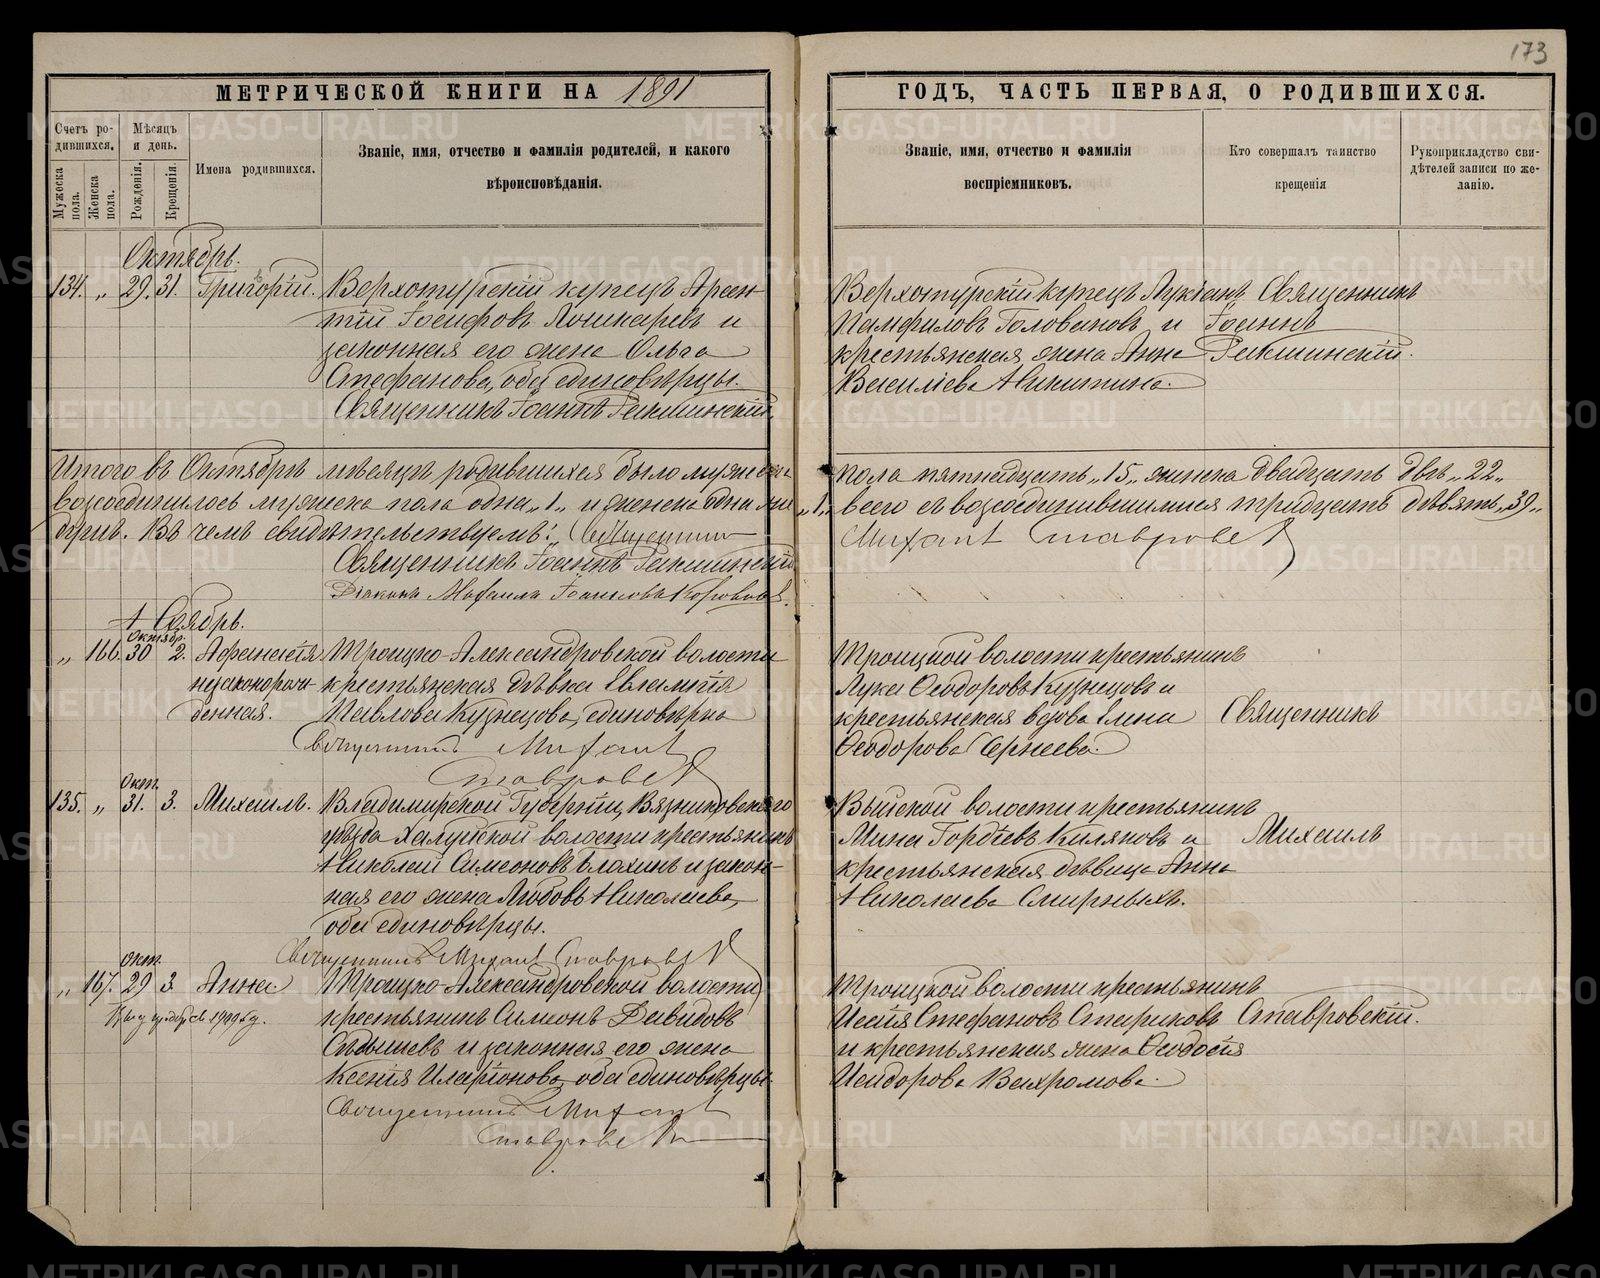 173
МЕТРИЧЕСКОЙ КНИГИ НА 1891
ГОДЪ, ЧАСТЬ ПЕРВАЯ, О РОДИВШИХСЯ.
Счетъ ро-
дившихся.
Мужеска пола.
Женска пола.
Мѣсяцъ
и день.
Рожденія.
Крещенія.
Имена родившихся.
Званіе, имя, отчество и фамилія родителей, и какого
вѣроисповѣданія.
Званіе, имя, отчество и фамилія
воспріемниковъ.
Кто совершалъ таинство
крещенія
Рукоприкладство сви-
дѣтелей записи по же-
ланію.
Октябрь.
134. „ 29. 31. Григорій.
Верхотурскій купецъ Арсен-
тій Іосифовъ Лошкаревъ и
законная его жена Ольга
Стефанова, оба единовѣрцы.
Священникъ Іоаннъ
Верхотурскій купецъ Лукіанъ
Памфиловъ Головановъ и
крестьянская жена Анна
Василіева Никитина.
Священникъ
Іоаннъ
Итого въ Октябрѣ мѣсяцѣ родившихся было мужеска
пола пятнадцать „15„ женска двадцать двѣ „22„
возсоединилось мужеска пола одна „1„ и женска одна „1„
всего съ возсоединившимися тридцать дѣвять „39„
Въ чемъ свидѣтельствуемъ: Священникъ
Михаилъ Ставровскій
Священникъ Іоаннъ
Діаконъ Михаилъ
Ноябрь.
„ 166. Октябр. 30 2. Афанасія
незаконорож-
денная.
Троицко-Александровской волости
крестьянская дѣвка Евлампія
Павлова Кузнецова, единовѣрка
Священникъ Михаилъ
Ставровскій
Троицкой волости крестьянинъ
Лука Ѳеодоровъ Кузнецовъ и
крестьянская вдова Елена
Ѳеодорова Сергеева.
Священникъ
135. „ Окт. 31. 3. Михаилъ.
Владимирской Губерніи, Вязниковскаго
уѣзда Холуйской волости крестьянинъ
Николай Симеоновъ Блохинъ и закон-
ная его жена Любовь Николаева,
оба единовѣрцы.
Священникъ Михаилъ Ставровскій
Выйской волости крестьянинъ
Мина Гордіевъ Киляковъ и
крестьянская дѣвица Анна
Николаева Смирныхъ.
Михаилъ
„ 167. окт. 29 3. Анна
1909 г.
Троицко-Александровской волости
крестьянинъ Симеонъ Давидовъ
и законная его жена
Ксенія Иларіонова, оба единовѣрцы.
Священникъ Михаилъ
Ставровскій
Троицкой волости крестьянинъ
Исаія Стефановъ Стариковъ
и крестьянская жена Ѳеодосія
Исидорова Вахромова.
Ставровскій.
METRIKI.GASO-URAL.RU